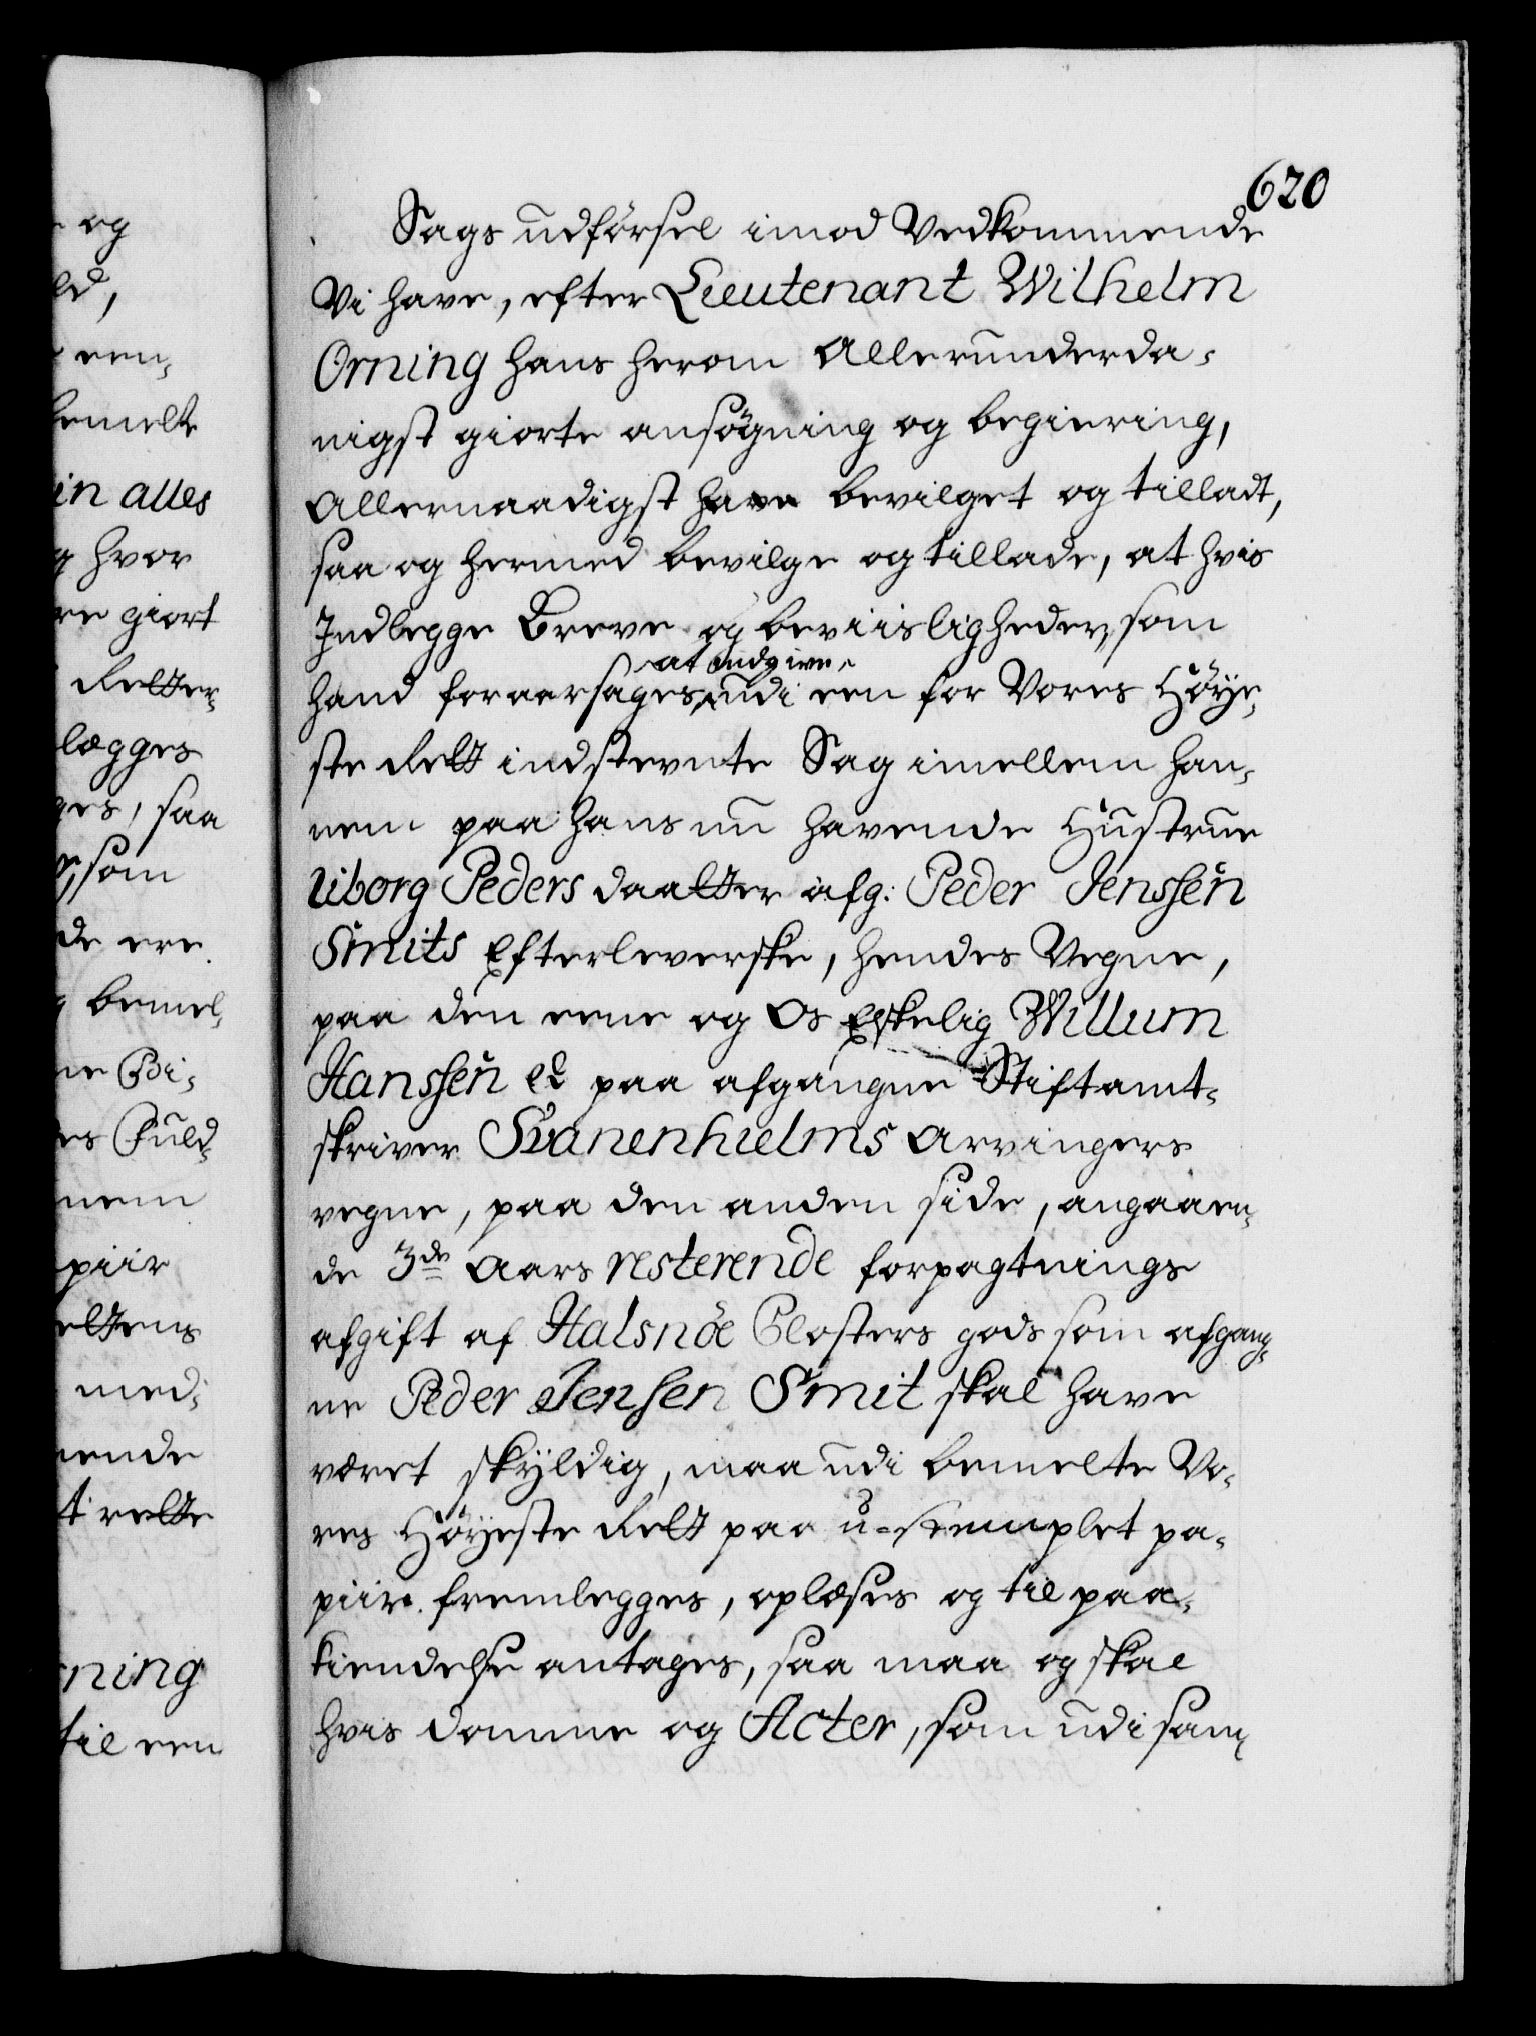 620
Sags udförsel imod Vedkommende
Vi have, efter Lieutenant Wilhelm
Orning hans herom Allerunderda-
nigst giorte ansögning og begiering,
Allernaadigst have bevilget og tilladt,
saa og hermed bevilge og tillade, at hvis
Indlegge Breve og beviisligheder, som
at indgive
hand foraarsages udi een for Vores Höye-
ste Rett indstevnte Sag imellem han-
nem paa hans nu havende Hustrue
Uiborg Peders daatter afg: Peder Jenssen
Smits Efterleverske, hendes Vegne,
paa den eene og Os Elskelig Willum
Hanssen etc paa afgangne Stiftamt-
skriver Svanenhielms Arvingers
vegne, paa den anden side, angaaen-
de 3de Aars resterende forpagtnings
afgift af Halsnöe Closters gods som afgang-
ne Peder Jensen Smit skal have
været skÿldig, maa udi bemelte Vo-
res Höÿeste Rett paa u-stemplet pa-
piir fremlegges, oplæses og til paa-
kiendelse antages, saa maa og skal
hvis domme og Acter, som udi sam-
og
ld,
een-
bemelte
in alles
hvor
re giort
Retter-
lægges
ges, saa
som
de ere
bemel-
ne Bi-
es Fuld-
nem
piir
ettens
med-
ende
t rette
rning
til een